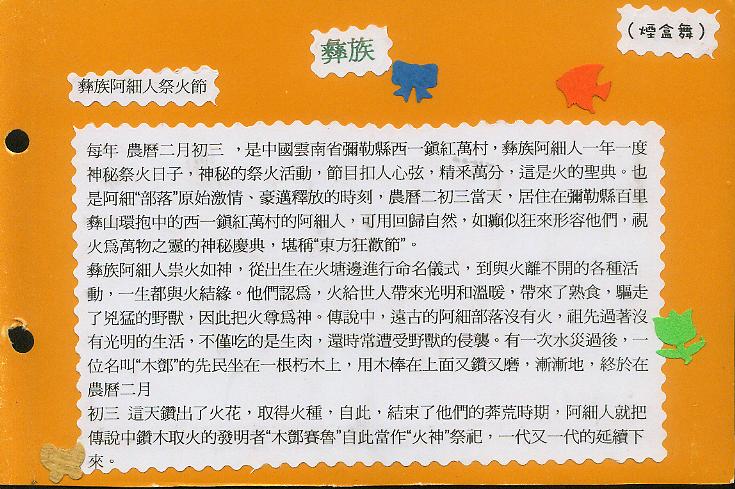 (煙盒舞)
彝族
彝族阿細人祭火節
每年 農曆二月初三 ，是中國雲南省彌勒縣西一鎮紅萬村，彝族阿細人一年一度
神秘祭火日子，神秘的祭火活動，節目扣人心弦，精釆萬分，這是火的聖典。也
是阿細“部落”原始激情、豪邁釋放的時刻，農曆二初三當天，居住在彌勒縣百里
彝山環抱中的西一鎮紅萬村的阿細人，可用回歸自然，如癲似狂來形容他們，視
火爲萬物之靈的神秘慶典，堪稱“東方狂歡節”。
彝族阿細人祟火如神，從出生在火塘邊進行命名儀式，到與火離不開的各種活
動，一生都與火結緣。他們認爲，火給世人帶來光明和溫暖，帶來了熟食，驅走
了兇猛的野獸，因此把火尊爲神。傳說中，遠古的阿細部落沒有火，祖先過著沒
有光明的生活，不僅吃的是生肉，還時常遭受野獸的侵襲。有一次水災過後，一
位名叫“木鄧”的先民坐在一根朽木上，用木棒在上面又鑽又磨，漸漸地，終於在
農曆二月
初三 這天鑽出了火花，取得火種，自此，結束了他們的莽荒時期，阿細人就把
傳說中鑽木取火的發明者“木鄧賽魯”自此當作“火神”祭祀，一代又一代的延續下
來。